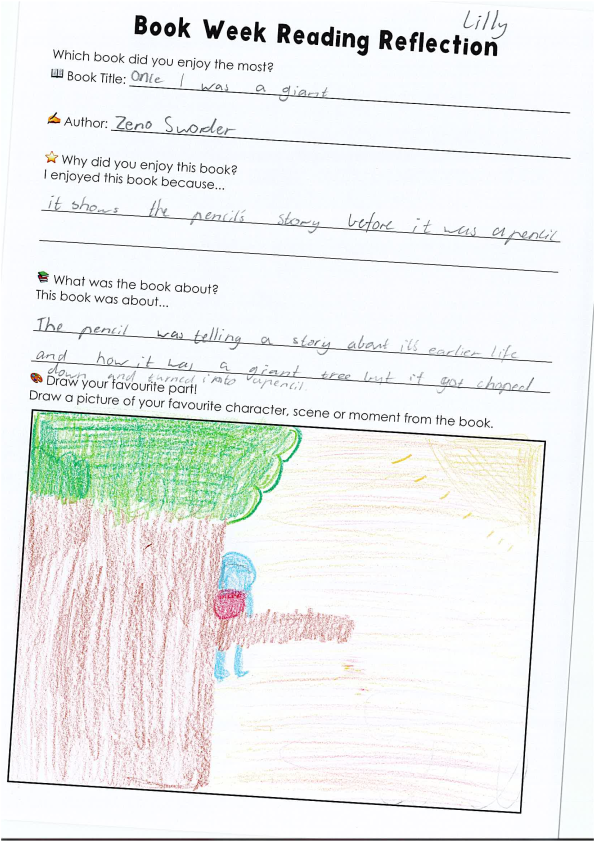 Lilly
Book Week Reading Reflection
Which book did you enjoy the most?
Book Title: Once I was a giant
Author: Zeno Sworder
Why did you enjoy this book?
I enjoyed this book because...
it shows the pencil's story before it was a pencil
What was the book about?
This book was about...
The pencil was telling a story about it's earlier life
and how it was a giant tree but it got choped
down and turned into a pencil.
Draw your favourite part!
Draw a picture of your favourite character, scene or moment from the book.